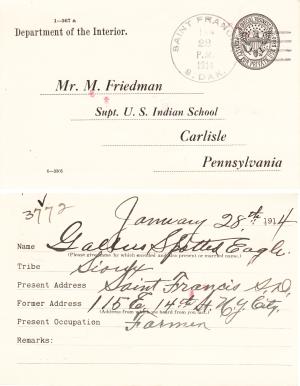 1—367 a
Department of the Interior.
SAINT FRANCIS
JAN
29
P.M.
1914
S. DAK.
Mr. M. Friedman
Supt. U. S. Indian School
Carlisle
Pennsylvania
6—3305
3772
January 28th, 1914
Name Galleus Spotted Eagle.
(Please give name by which enrolled and also present or married name.)
Tribe Sioux
Present Address Saint Francis S.D.
Former Address 115 E. 14th St. N.Y. City.
(Address from which we heard from you last.)
Present Occupation Farmer
Remarks: